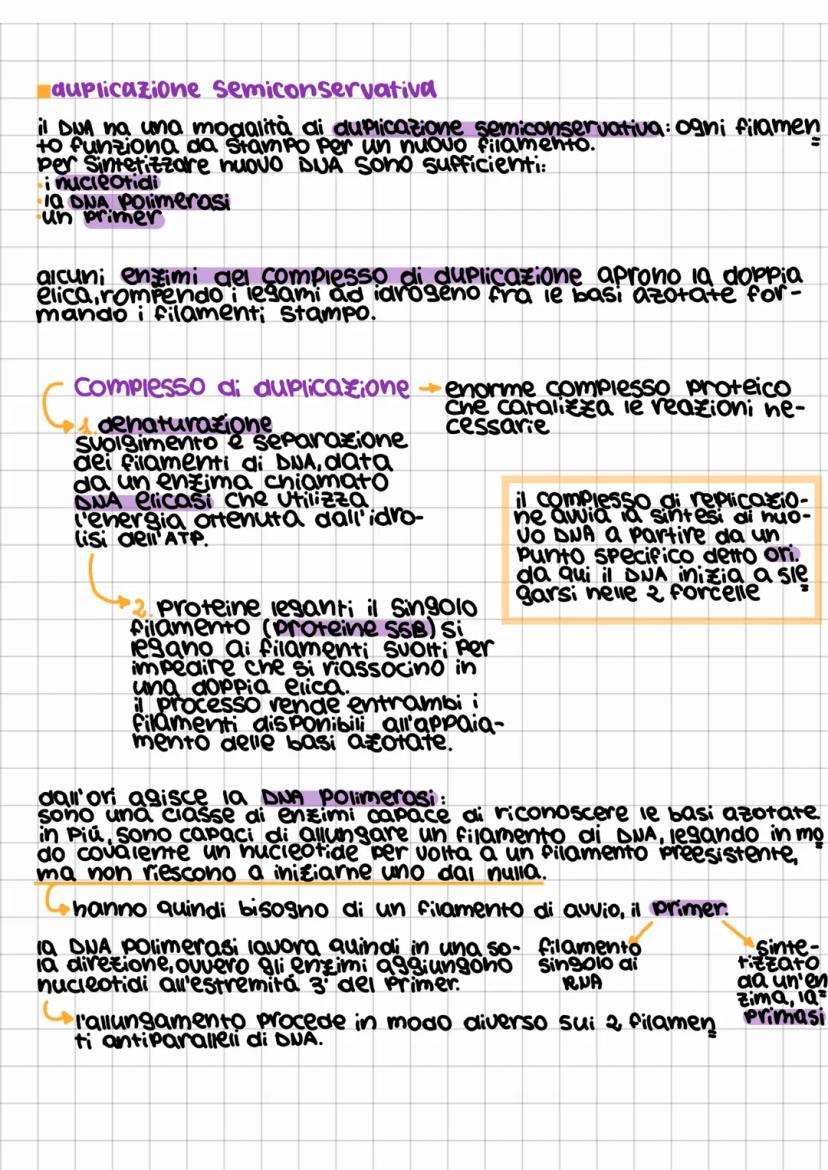 duplicazione semiconservativa
il DNA ha una modalità di duplicazione semiconservativa: ogni filamen
to funziona da stampo per un nuovo filamento.
per sintetizzare nuovo DNA sono sufficienti:
·i nucleotidi
·la DNA polimerasi
·un primer
alcuni enzimi del complesso di duplicazione aprono la doppia
elica, rompendo i legami ad idrogeno fra le basi azotate for-
mando i filamenti stampo.
Complesso di duplicazione → enorme complesso proteico
che catalizza le reazioni ne-
cessarie
1. denaturazione
svolgimento e separazione
dei filamenti di DNA, data
da un enzima chiamato
DNA elicasi che utilizza
l'energia ottenuta dall'idro-
lisi dell'ATP.
il complesso di replicazio-
ne avvia la sintesi di nuo-
vo DNA a partire da un
punto specifico detto ori.
da qui il DNA inizia a sle
garsi nelle 2 forcelle
2. proteine leganti il singolo
filamento (proteine SSB) si
legano ai filamenti svolti per
impedire che si riassocino in
una doppia elica.
il processo rende entrambi i
filamenti disponibili all'appaia-
mento delle basi azotate.
dall'ori agisce la DNA polimerasi:
sono una classe di enzimi capace di riconoscere le basi azotate.
in più, sono capaci di allungare un filamento di DNA, legando in mo
do covalente un nucleotide per volta a un filamento preesistente,
ma non riescono a iniziarne uno dal nulla.
hanno quindi bisogno di un filamento di avvio, il primer.
la DNA polimerasi lavora quindi in una so-
la direzione, ovvero gli enzimi aggiungono
nucleotidi all'estremità 3' del primer.
filamento
singolo di
RNA
sinte-
tizzato
da un'en
zima, la
primasi
l'allungamento procede in modo diverso sui 2 filamen
ti antiparalleli di DNA.